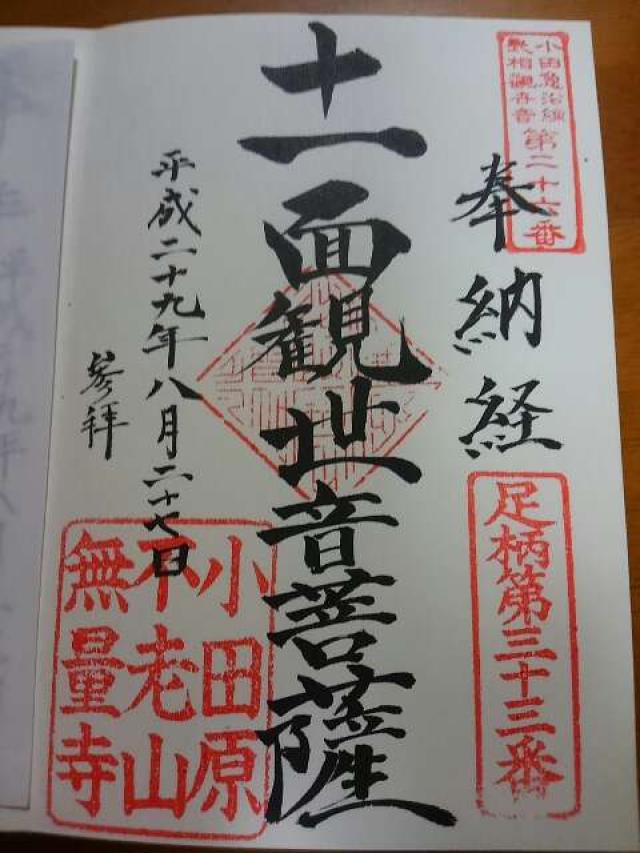 小田急沿線
武相観世音
第二十六番
奉納経
足柄第三十三番
十一面観世音菩薩
平成二十九年八月二十七日
参拝
小田原
不老山
無量寺